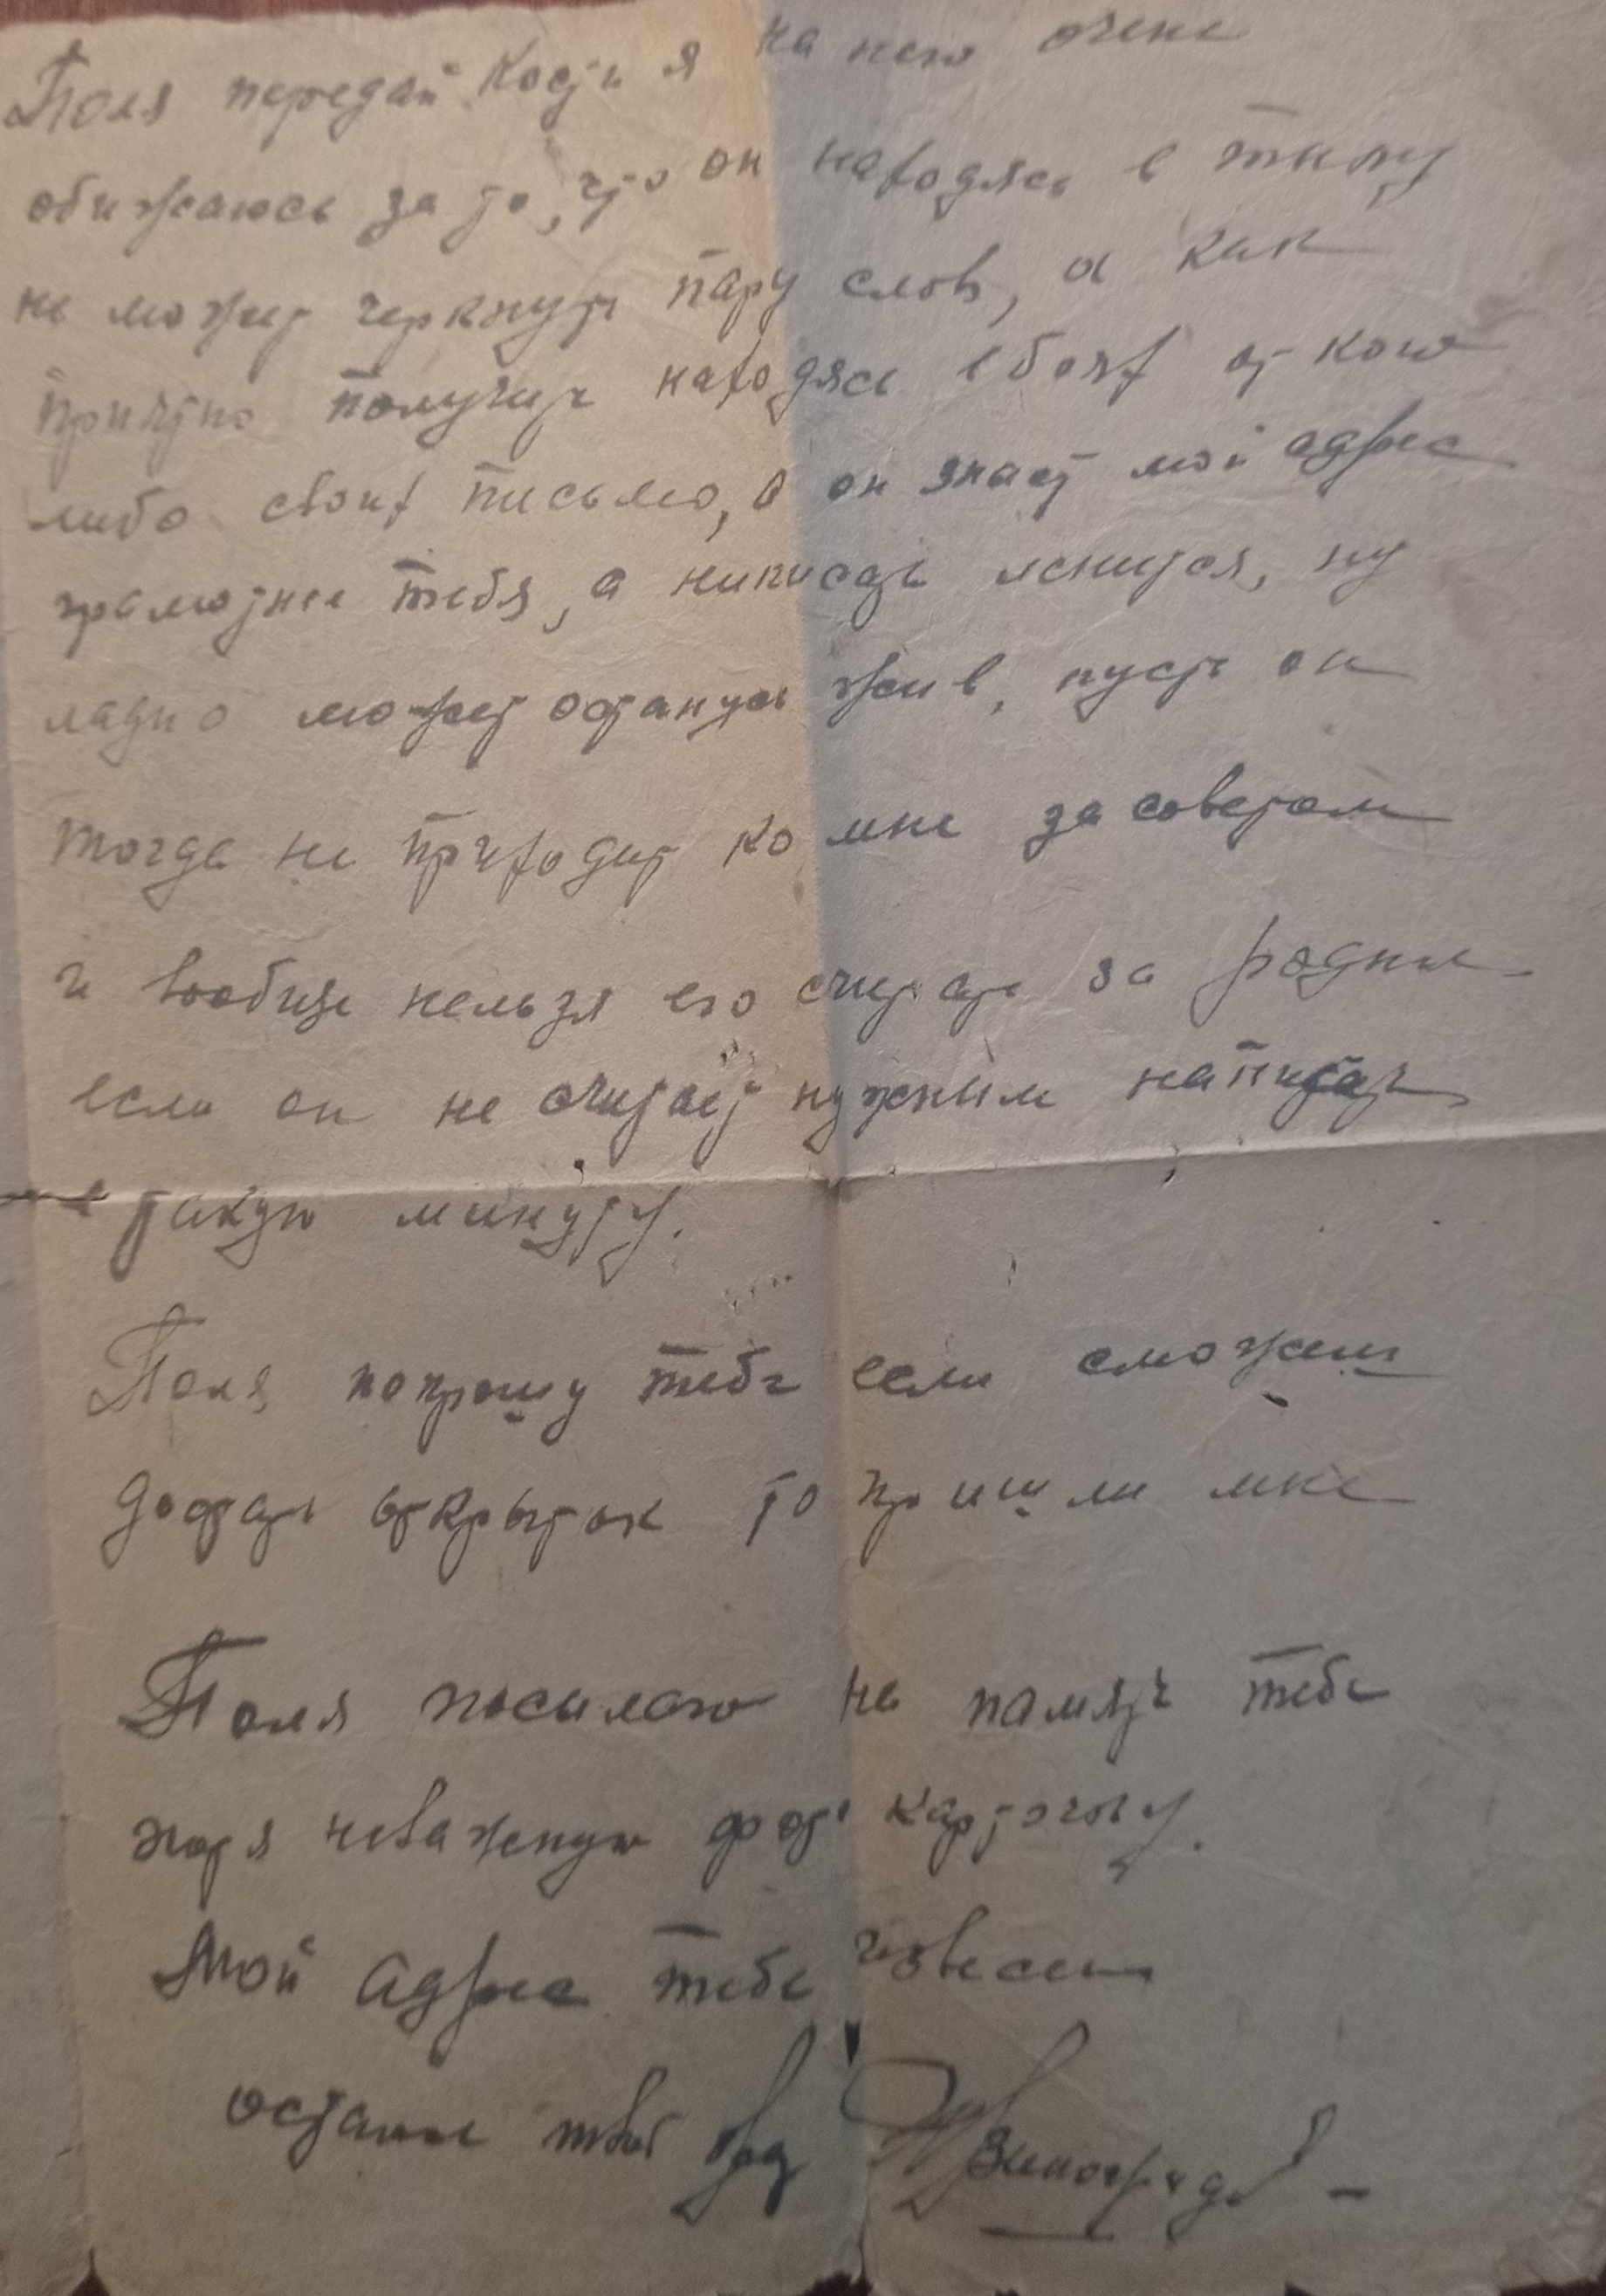 Поля передай Кости я на него очень
обижаюсь за то, что он находясь в тылу
не может черкнуть пару слов, а как
приятно получить находясь в боях от кого
либо своих письмо, а он знает мой адрес
грамотнее тебя, а написать ленится, ну
ладно может останусь жив, пусть он
тогда не приходит ко мне за советом
и вообще нельзя его считать за родных
если он не считает нужным написать
в такую минуту.
Поля попрошу тебя если сможешь
достать открыток то пришли мне
Поля посылаю на память тебе
хотя неважную фото карточку.
Мой адрес тебе известен
остаюсь твой брат Виноградов